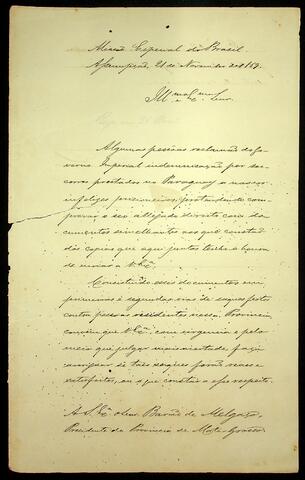 Missão Especial do Brasil
Assumpção, 21 de Novembro de 1869.
Ill.mo e Ex.mo Senr.
Algumas pessoas reclamão do Go-
verno Imperial indemnisação por soc-
corros prestados no Paraguay a nossos
infelizes prisioneiros, pretendendo com-
provar o seu allegado direito com do-
cumentos semelhantes aos que constão
das copias que aqui juntas tenho a honra
de enviar a V. Ex.ª
Consistindo esses documentos em
primeiras e segundas vias de saques feitos
contra pessoas residentes nessa Provincia,
convém que V. Ex.ª, com urgencia e pelo
meio que julgar mais conveniente, faça
averiguar se taes saques forão ou não
satisfeitos, ou o que consta a esse respeito.
A S. Ex.ª o Senr. Barão de Melgaço,
Presidente da Provincia de Mato-Grosso.